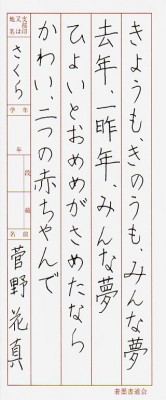 きょうも、きのうも、みんな夢
去年、一昨年、みんな夢
ひょいとおめめがさめたなら
かわいい二つの赤ちゃんで
支部印又は地名
さくら
学年
年
段級
名前
菅野花真
書墨書道会